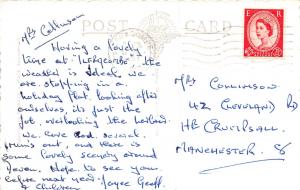 Mrs Collinson
POST CARD
E R
Having a lovely
time at Ilfracombe, the
weather is ideal, we
are stopping in a
holiday flat looking after
ourselves its just the
job, overlooking the
we have had several
runs out, and there is
some lovely scenery around
Devon. Hope to see you
before next year. Joyce Geoff.
& Children
Mrs Collinson
42 Cleveland Rd
Hr Crumpsall
Manchester 8